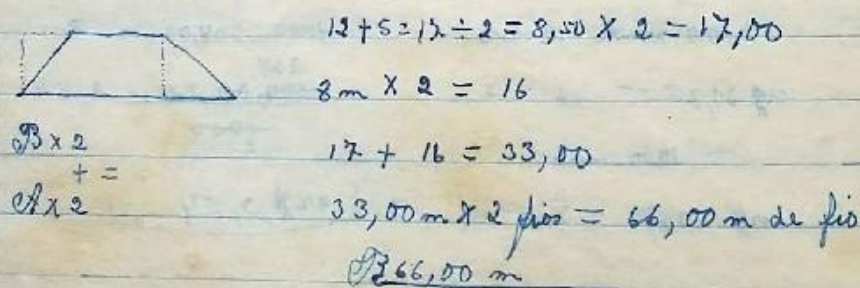 12 + 5 = 17 ÷ 2 = 8,50 X 2 = 17,00
8 m X 2 = 16
B x 2
+ =
A x 2
17 + 16 = 33,00
33,00 m X 2 fios = 66,00 m de fio
R 66,00 m